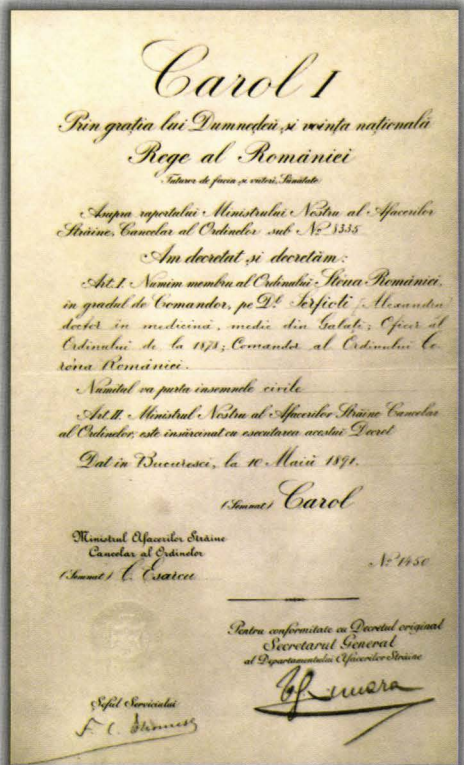 Carol I
Prin grația lui Dumnedeŭ și voința națională
Rege al României
Tuturor de facia și viitori, Sănătate
Asupra raportului Ministrului Nostru al Afacerilor
Străine, Cancelar al Ordinelor sub Nº 8335
Am decretat și decretăm:
Art. I. Numim membru al Ordinului Steua României,
in gradul de Comandor, pe Dl. Serfioti (Alexandru)
doctor in medicină, medic din Galați; Oficer al
Ordinului de la 1878; Comandor al Ordinului Co-
róna Românieí.
Numitul va purta insemnele civile
Art. II. Ministrul Nostru al Afacerilor Străine Cancelar
al Ordinelor, este insărcinat cu esecutarea acestui Decret
Dat in Bucuresci, la 10 Maiŭ 1891.
(Semnat) Carol
Ministrul Afacerilor Străine
Cancelar al Ordinelor
(Semnat) C. Esarcu
Nº 1450
Pentru conformitate cu Decretul original
Secretarul General
al Departamentului Afacerilor Străine
Șeful Serviciului